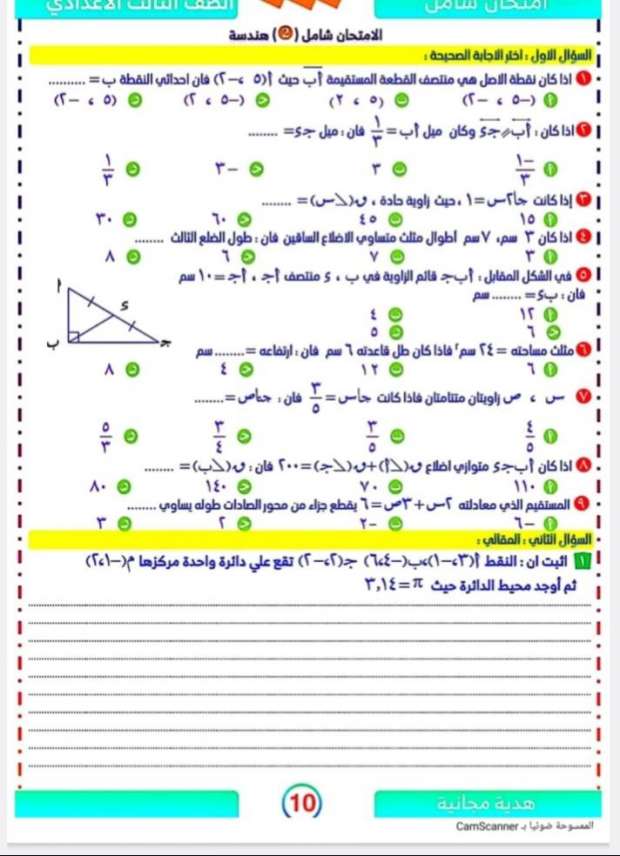 امتحان شامل
الصف الثالث الإعدادي
الامتحان شامل (2) هندسة
السؤال الأول : اختر الإجابة الصحيحة :
1 إذا كان نقطة الأصل هي منتصف القطعة المستقيمة أب حيث أ(5 ، -2) فإن إحداثي النقطة ب = ..........
أ (-5 ، -2) ب (5 ، 2) ج (-5 ، 2) د (5 ، -2)
2 إذا كان : أب // جـ د وكان ميل أب = ١/٣ فإن : ميل جـ د = ........
أ -١/٣ ب ٣ ج -٣ د ١/٣
3 إذا كانت حا٢س = ١ ، حيث زاوية حادة ، ق(∠س) = ........
أ ١٥ ب ٤٥ ج ٦٠ د ٣٠
4 إذا كان ٣ سم ، ٧ سم أطوال مثلث متساوى الأضلاع الساقين فإن : طول الضلع الثالث ........
أ ٣ ب ٧ ج ٦ د ٨
5 في الشكل المقابل : أب جـ قائم الزاوية في ب ، د منتصف أجـ ، أجـ = ١٠ سم
فإن : ب د = ........ سم
أ ١٢ ب ٤
ج ٦ د ٥
أ
د
ب
جـ
6 مثلث مساحته = ٢٤ سم٢ فإذا كان طل قاعدته ٦ سم فإن : ارتفاعه = ........ سم
أ ٦ ب ١٢ ج ٤ د ٨
7 س ، ص زاويتان متتامتان فإذا كانت حاس = ٣/٥ فإن : حتاص = ........
أ ٤/٥ ب ٣/٥ ج ٣/٤ د ٥/٣
8 إذا كان أب جـ د متوازى أضلاع ق(∠أ) + ق(∠جـ) = ٢٠٠ فإن : ق(∠ب) = ........
أ ١١٠ ب ٧٠ ج ١٤٠ د ٨٠
9 المستقيم الذى معادلته ٢س + ٣ص = ٦ يقطع جزء من محور الصادات طوله يساوى ........
أ -٦ ب -٢ ج ٢ د ٣
السؤال الثانى : المقالى :
1 اثبت ان : النقط أ(٣،-١)،ب(-٤،٦) جـ(٢،-٢) تقع على دائرة واحدة مركزها م(-١،٢)
ثم أوجد محيط الدائرة حيث π = ٣,١٤
10
هدية مجانية
الممسوحة ضوئيا بـ CamScanner